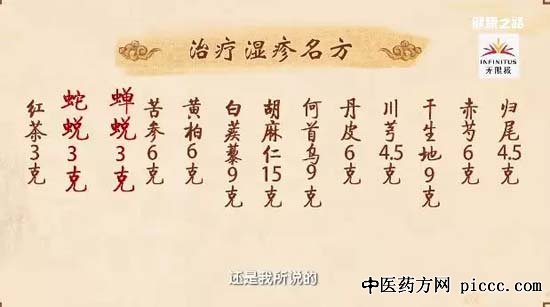 健康之路
治疗湿疹名方
INFINITUS
无限极
归尾4.5克
赤芍6克
干生地9克
川芎4.5克
丹皮6克
何首乌9克
胡麻仁15克
白蒺藜9克
黄柏6克
苦参6克
蝉蜕3克
蛇蜕3克
红茶3克
还是我所说的
中医药方网 piccc.com